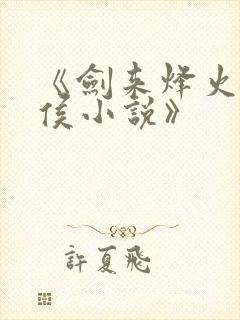 《劍来烽火
侯小說》
許夏飛